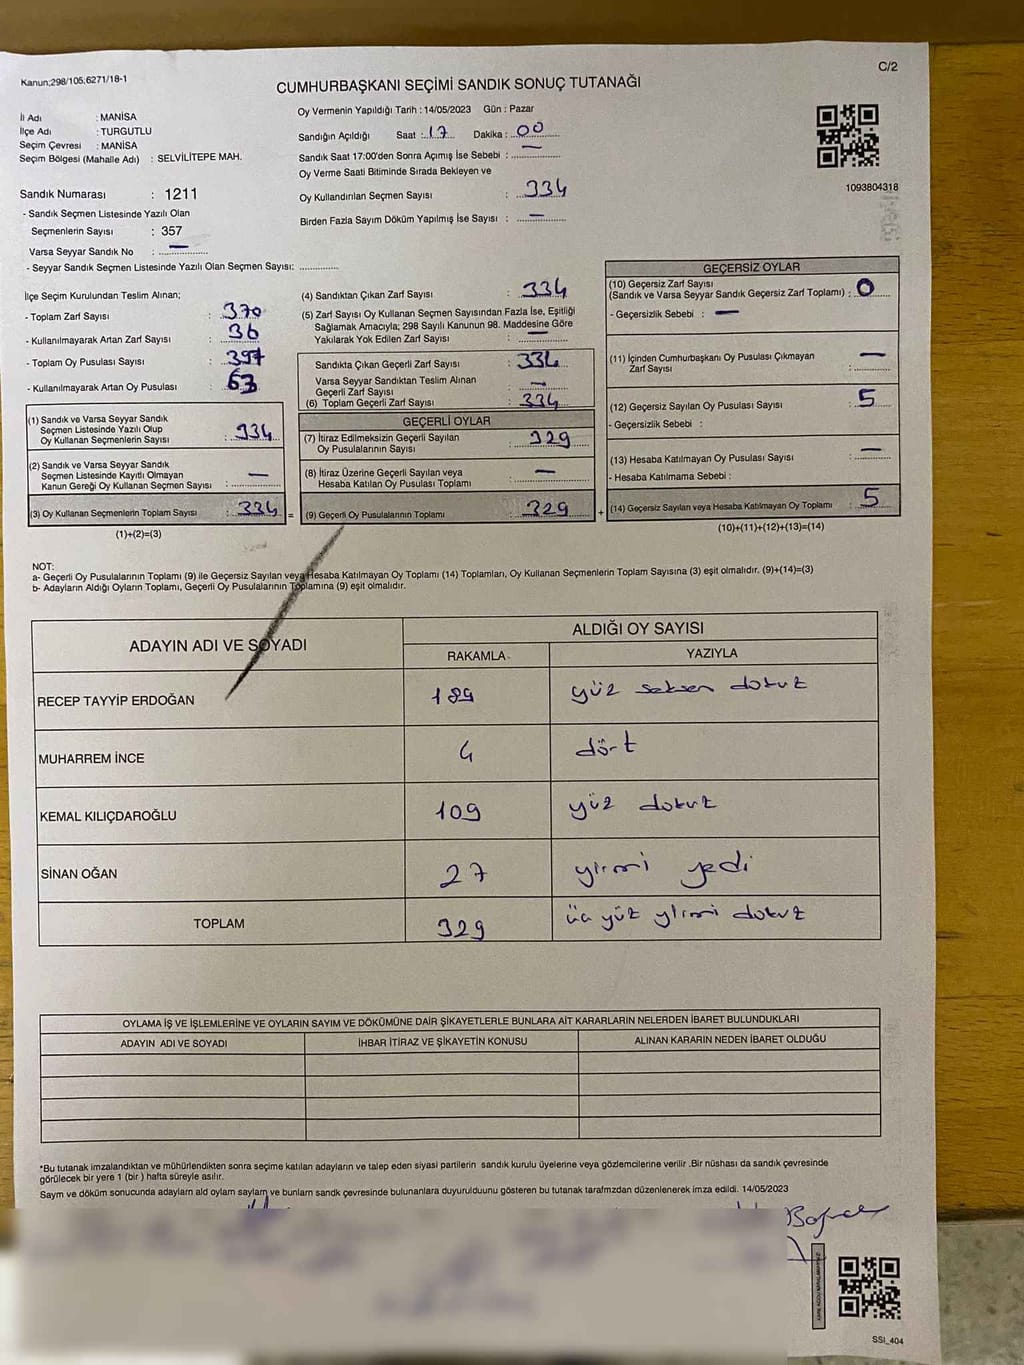 Kanun;298/105;6271/18-1
C/2
CUMHURBAŞKANI SEÇİMİ SANDIK SONUÇ TUTANAĞI
İl Adı : MANİSA
İlçe Adı : TURGUTLU
Seçim Çevresi : MANİSA
Seçim Bölgesi (Mahalle Adı) : SELVİLİTEPE MAH.
Sandık Numarası : 1211
- Sandık Seçmen Listesinde Yazılı Olan
Seçmenlerin Sayısı : 357
Varsa Seyyar Sandık No : —
- Seyyar Sandık Seçmen Listesinde Yazılı Olan Seçmen Sayısı: ..............
Oy Vermenin Yapıldığı Tarih : 14/05/2023 Gün : Pazar
Sandığın Açıldığı Saat : 17 Dakika : 00
Sandık Saat 17:00'den Sonra Açımış İse Sebebi : —
Oy Verme Saati Bitiminde Sırada Bekleyen ve
Oy Kullandırılan Seçmen Sayısı : 334
Birden Fazla Sayım Döküm Yapılmış İse Sayısı : —
1093804318
İlçe Seçim Kurulundan Teslim Alınan;
- Toplam Zarf Sayısı : 370
- Kullanılmayarak Artan Zarf Sayısı : 36
- Toplam Oy Pusulası Sayısı : 397
- Kullanılmayarak Artan Oy Pusulası : 63
(1) Sandık ve Varsa Seyyar Sandık
Seçmen Listesinde Yazılı Olup
Oy Kullanan Seçmenlerin Sayısı : 334
(2) Sandık ve Varsa Seyyar Sandık
Seçmen Listesinde Kayıtlı Olmayan
Kanun Gereği Oy Kullanan Seçmen Sayısı : —
(3) Oy Kullanan Seçmenlerin Toplam Sayısı : 334 =
(1)+(2)=(3)
(4) Sandıktan Çıkan Zarf Sayısı : 334
(5) Zarf Sayısı Oy Kullanan Seçmen Sayısından Fazla İse, Eşitliği
Sağlamak Amacıyla; 298 Sayılı Kanunun 98. Maddesine Göre
Yakılarak Yok Edilen Zarf Sayısı : —
Sandıkta Çıkan Geçerli Zarf Sayısı : 334
Varsa Seyyar Sandıktan Teslim Alınan
Geçerli Zarf Sayısı : —
(6) Toplam Geçerli Zarf Sayısı : 334
GEÇERLİ OYLAR
(7) İtiraz Edilmeksizin Geçerli Sayılan
Oy Pusulalarının Sayısı : 329
(8) İtiraz Üzerine Geçerli Sayılan veya
Hesaba Katılan Oy Pusulası Toplamı : —
(9) Geçerli Oy Pusulalarının Toplamı : 329 +
GEÇERSİZ OYLAR
(10) Geçersiz Zarf Sayısı
(Sandık ve Varsa Seyyar Sandık Geçersiz Zarf Toplamı) : 0
- Geçersizlik Sebebi : —
(11) İçinden Cumhurbaşkanı Oy Pusulası Çıkmayan
Zarf Sayısı : —
(12) Geçersiz Sayılan Oy Pusulası Sayısı : 5
- Geçersizlik Sebebi :
(13) Hesaba Katılmayan Oy Pusulası Sayısı : —
- Hesaba Katılmama Sebebi :
(14) Geçersiz Sayılan veya Hesaba Katılmayan Oy Toplamı : 5
(10)+(11)+(12)+(13)=(14)
NOT:
a- Geçerli Oy Pusulalarının Toplamı (9) ile Geçersiz Sayılan veya Hesaba Katılmayan Oy Toplamı (14) Toplamları, Oy Kullanan Seçmenlerin Toplam Sayısına (3) eşit olmalıdır. (9)+(14)=(3)
b- Adayların Aldığı Oyların Toplamı, Geçerli Oy Pusulalarının Toplamına (9) eşit olmalıdır.
ADAYIN ADI VE SOYADI ALDIĞI OY SAYISI
RAKAMLA YAZIYLA
RECEP TAYYİP ERDOĞAN 189 yüz seksen dokuz
MUHARREM İNCE 4 dört
KEMAL KILIÇDAROĞLU 109 yüz dokuz
SİNAN OĞAN 27 yirmi yedi
TOPLAM 329 üç yüz yirmi dokuz
OYLAMA İŞ VE İŞLEMLERİNE VE OYLARIN SAYIM VE DÖKÜMÜNE DAİR ŞİKAYETLERLE BUNLARA AİT KARARLARIN NELERDEN İBARET BULUNDUKLARI
ADAYIN ADI VE SOYADI İHBAR İTİRAZ VE ŞİKAYETİN KONUSU ALINAN KARARIN NEDEN İBARET OLDUĞU
*Bu tutanak imzalandıktan ve mühürlendikten sonra seçime katılan adayların ve talep eden siyasi partilerin sandık kurulu üyelerine veya gözlemcilerine verilir .Bir nüshası da sandık çevresinde
görülecek bir yere 1 (bir ) hafta süreyle asılır.
Sayım ve döküm sonucunda adayların ald oyların sayıları ve bunların sandk çevresinde bulunanlara duyurulduunu gösteren bu tutanak tarafmzdan düzenlenerek imza edildi. 14/05/2023
SSI_404